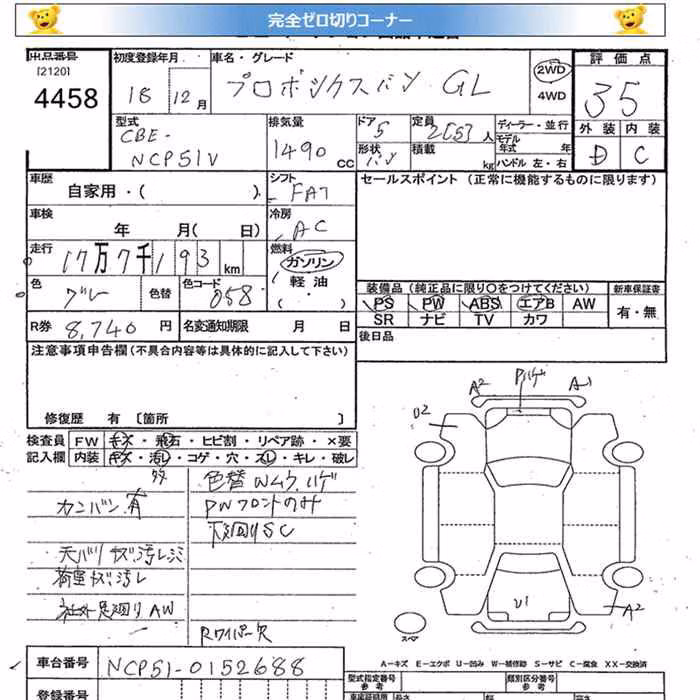 完全ゼロ切りコーナー
出品番号 初度登録年月 車名・グレード 評価点
[2120]
4458 18 12月 プロボックスバン GL 2WD 4WD 35
型式 排気量 ドア 定員 ディーラー・並行 外装 内装
CBE- 1490 CC 5 2[5]人 モデル年式 年 D C
NCP51V 形状 バン 積載 kg ハンドル 左・右
車歴 シフト セールスポイント (正常に機能するものに限ります)
自家用・( ). FAT
車検 冷房
年 月( 日) AC
走行 燃料
17万7千193km ガソリン
色 色替 色コード 軽油 装備品(純正品に限り〇をつけてください) 新車保証書
グレー 058 ・( ) PS PW ABS エアB AW 有・無
SR ナビ TV カワ
R券 8,740円 名変通知期限 月 日 後日品
注意事項申告欄(不具合内容等は具体的に記入して下さい)
修復歴 有 〔箇所 〕
検査員 FW キズ・飛石・ヒビ割・リペア跡・×要
記入欄 内装 キズ・汚レ・コゲ・穴・スレ・キレ・破レ
色替 Wムラ,ハゲ
カンバン有 PWフロントのみ
下回りSC
天バリ キズ汚レ
荷室キズ汚レ
社外足廻り AW
Rワイパー欠
A2 Pハゲ A1
U2
U1
A2
スペア
A-キズ E-エクボ U-凹み W-補修跡 S-サビ C-腐食 XX-交換済
車台番号 NCP51-0152688 型式指定番号 参考 類別区分番号 参考
登録番号 長さ 幅 高さ